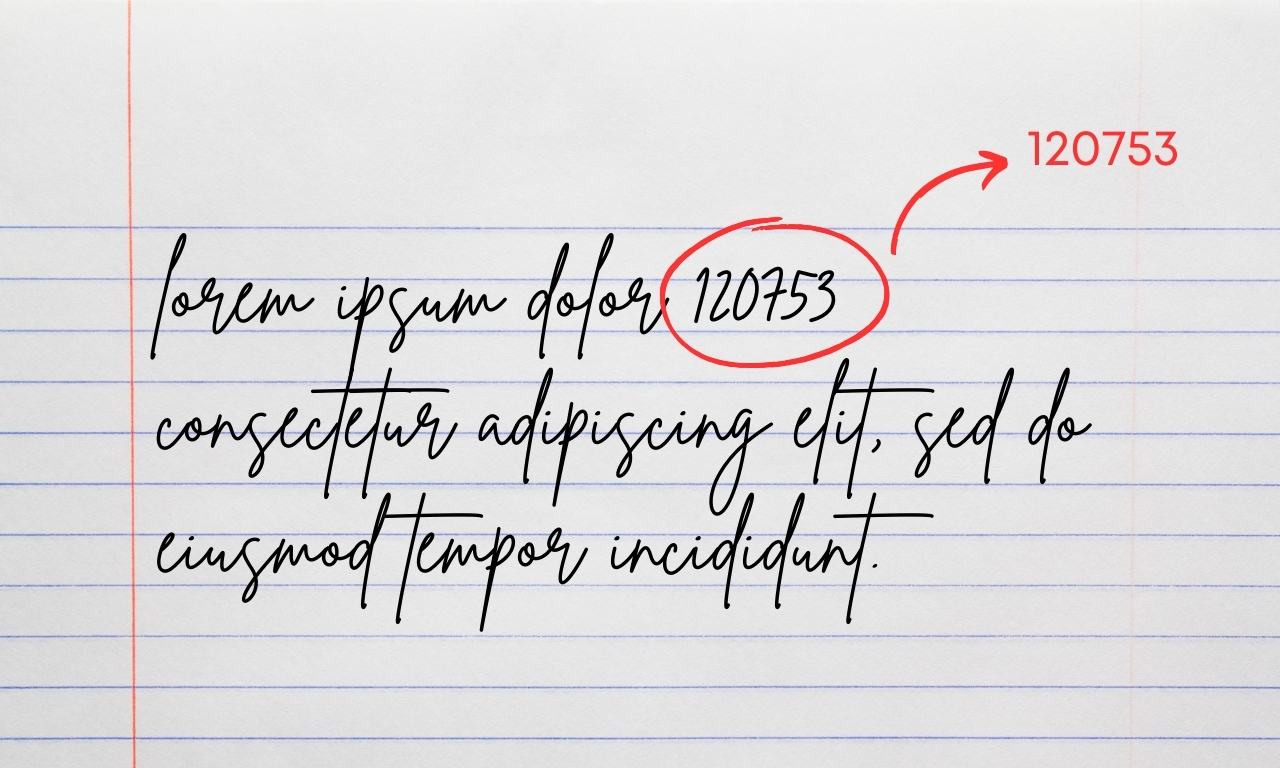 120753
lorem ipsum dolor 120753
consectetur adipiscing elit, sed do
eiusmod tempor incididunt.